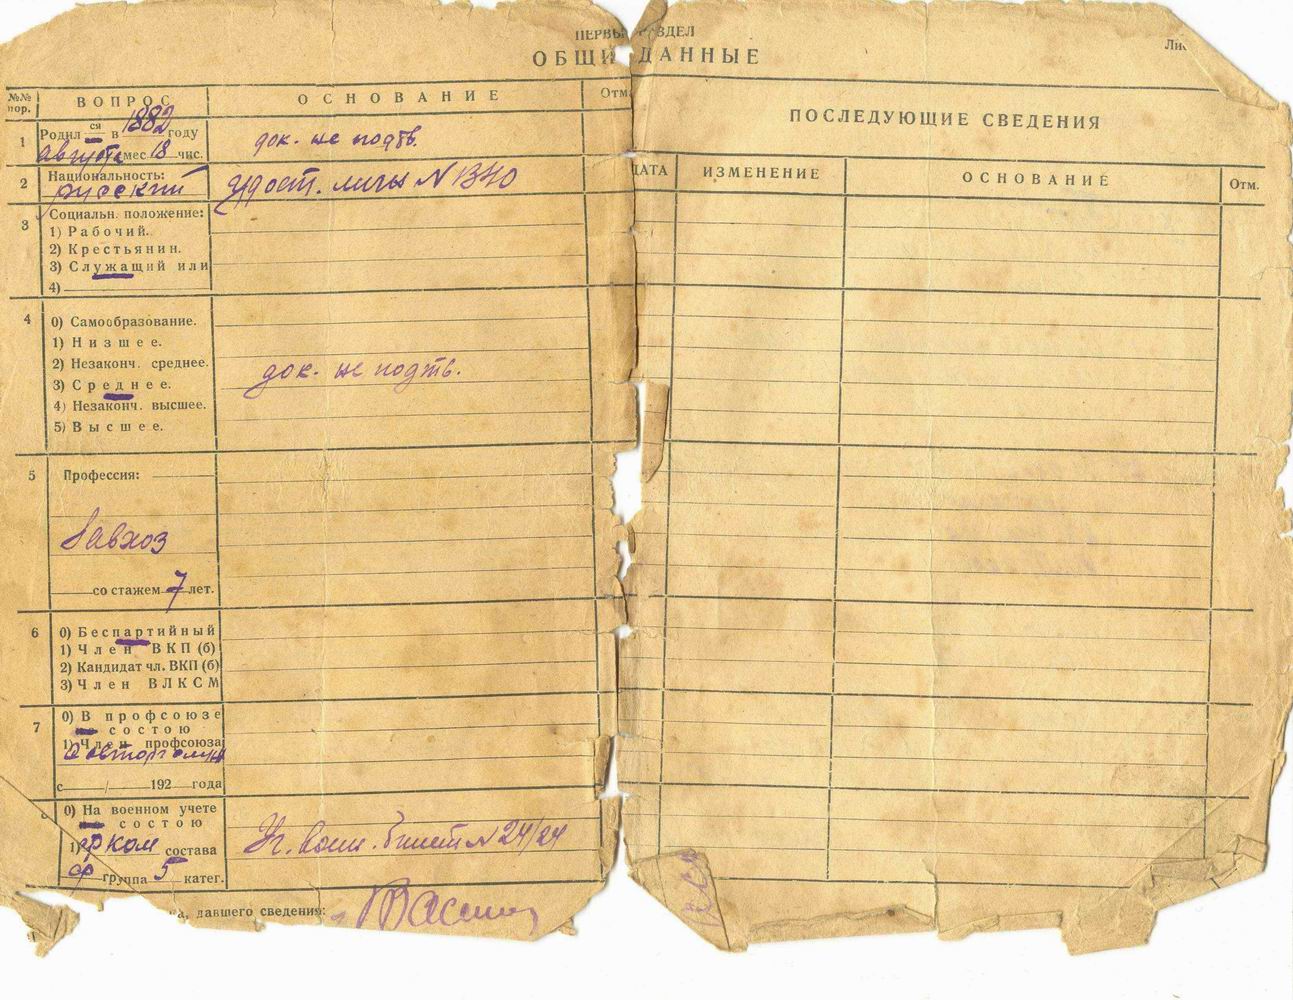 ПЕРВЫЙ РАЗДЕЛ
ОБЩИЕ ДАННЫЕ
№№ пор.
ВОПРОС
ОСНОВАНИЕ
Отм.
1
Родил ся в 1882 году
августа мес 18 чис.
док. не подтв.
2
Национальность:
русский
удост. личн N 1340
3
Социальн. положение:
1) Рабочий.
2) Крестьянин.
3) Служащий или
4)
4
0) Самообразование.
1) Низшее.
2) Незаконч. среднее.
3) Среднее.
4) Незаконч. высшее.
5) Высшее.
док. не подтв.
5
Профессия:
Завхоз
со стажем 7 лет.
6
0) Беспартийный
1) Член ВКП (б)
2) Кандидат чл. ВКП (б)
3) Член ВЛКСМ
7
0) В профсоюзе
не состою
1) Член профсоюза
с 192 года
0) На военном учете
не состою
1) ком состава
группа 5 катег.
Уч. воин. билет N 24/24
давшего сведения:
ПОСЛЕДУЮЩИЕ СВЕДЕНИЯ
ДАТА
ИЗМЕНЕНИЕ
ОСНОВАНИЕ
Отм.